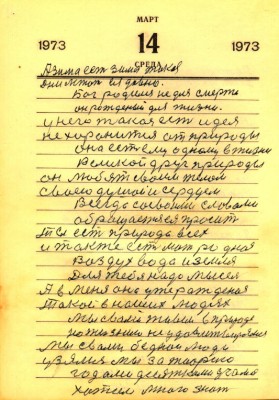 МАРТ
1973 14 1973
СРЕДА
А зима есть зима такая
Бог родился не для смерти
он рожденный для жизни.
у него такая есть идея
не хоронится от природы
она есть ему одному в жизни
Великой друг природы
он любят своим телом
своею душой и сердцем
Всегда со своими словами
обращается просит
Ты есть природа всех
и также есть мать родная
Воздух вода и земля
Для тебя надо мысля
А в меня она утвержденная
такой в наших людях
Мы с вами в природе
Мы с вами бедной люди
взялися мы за
годами десятками
хотели много знать